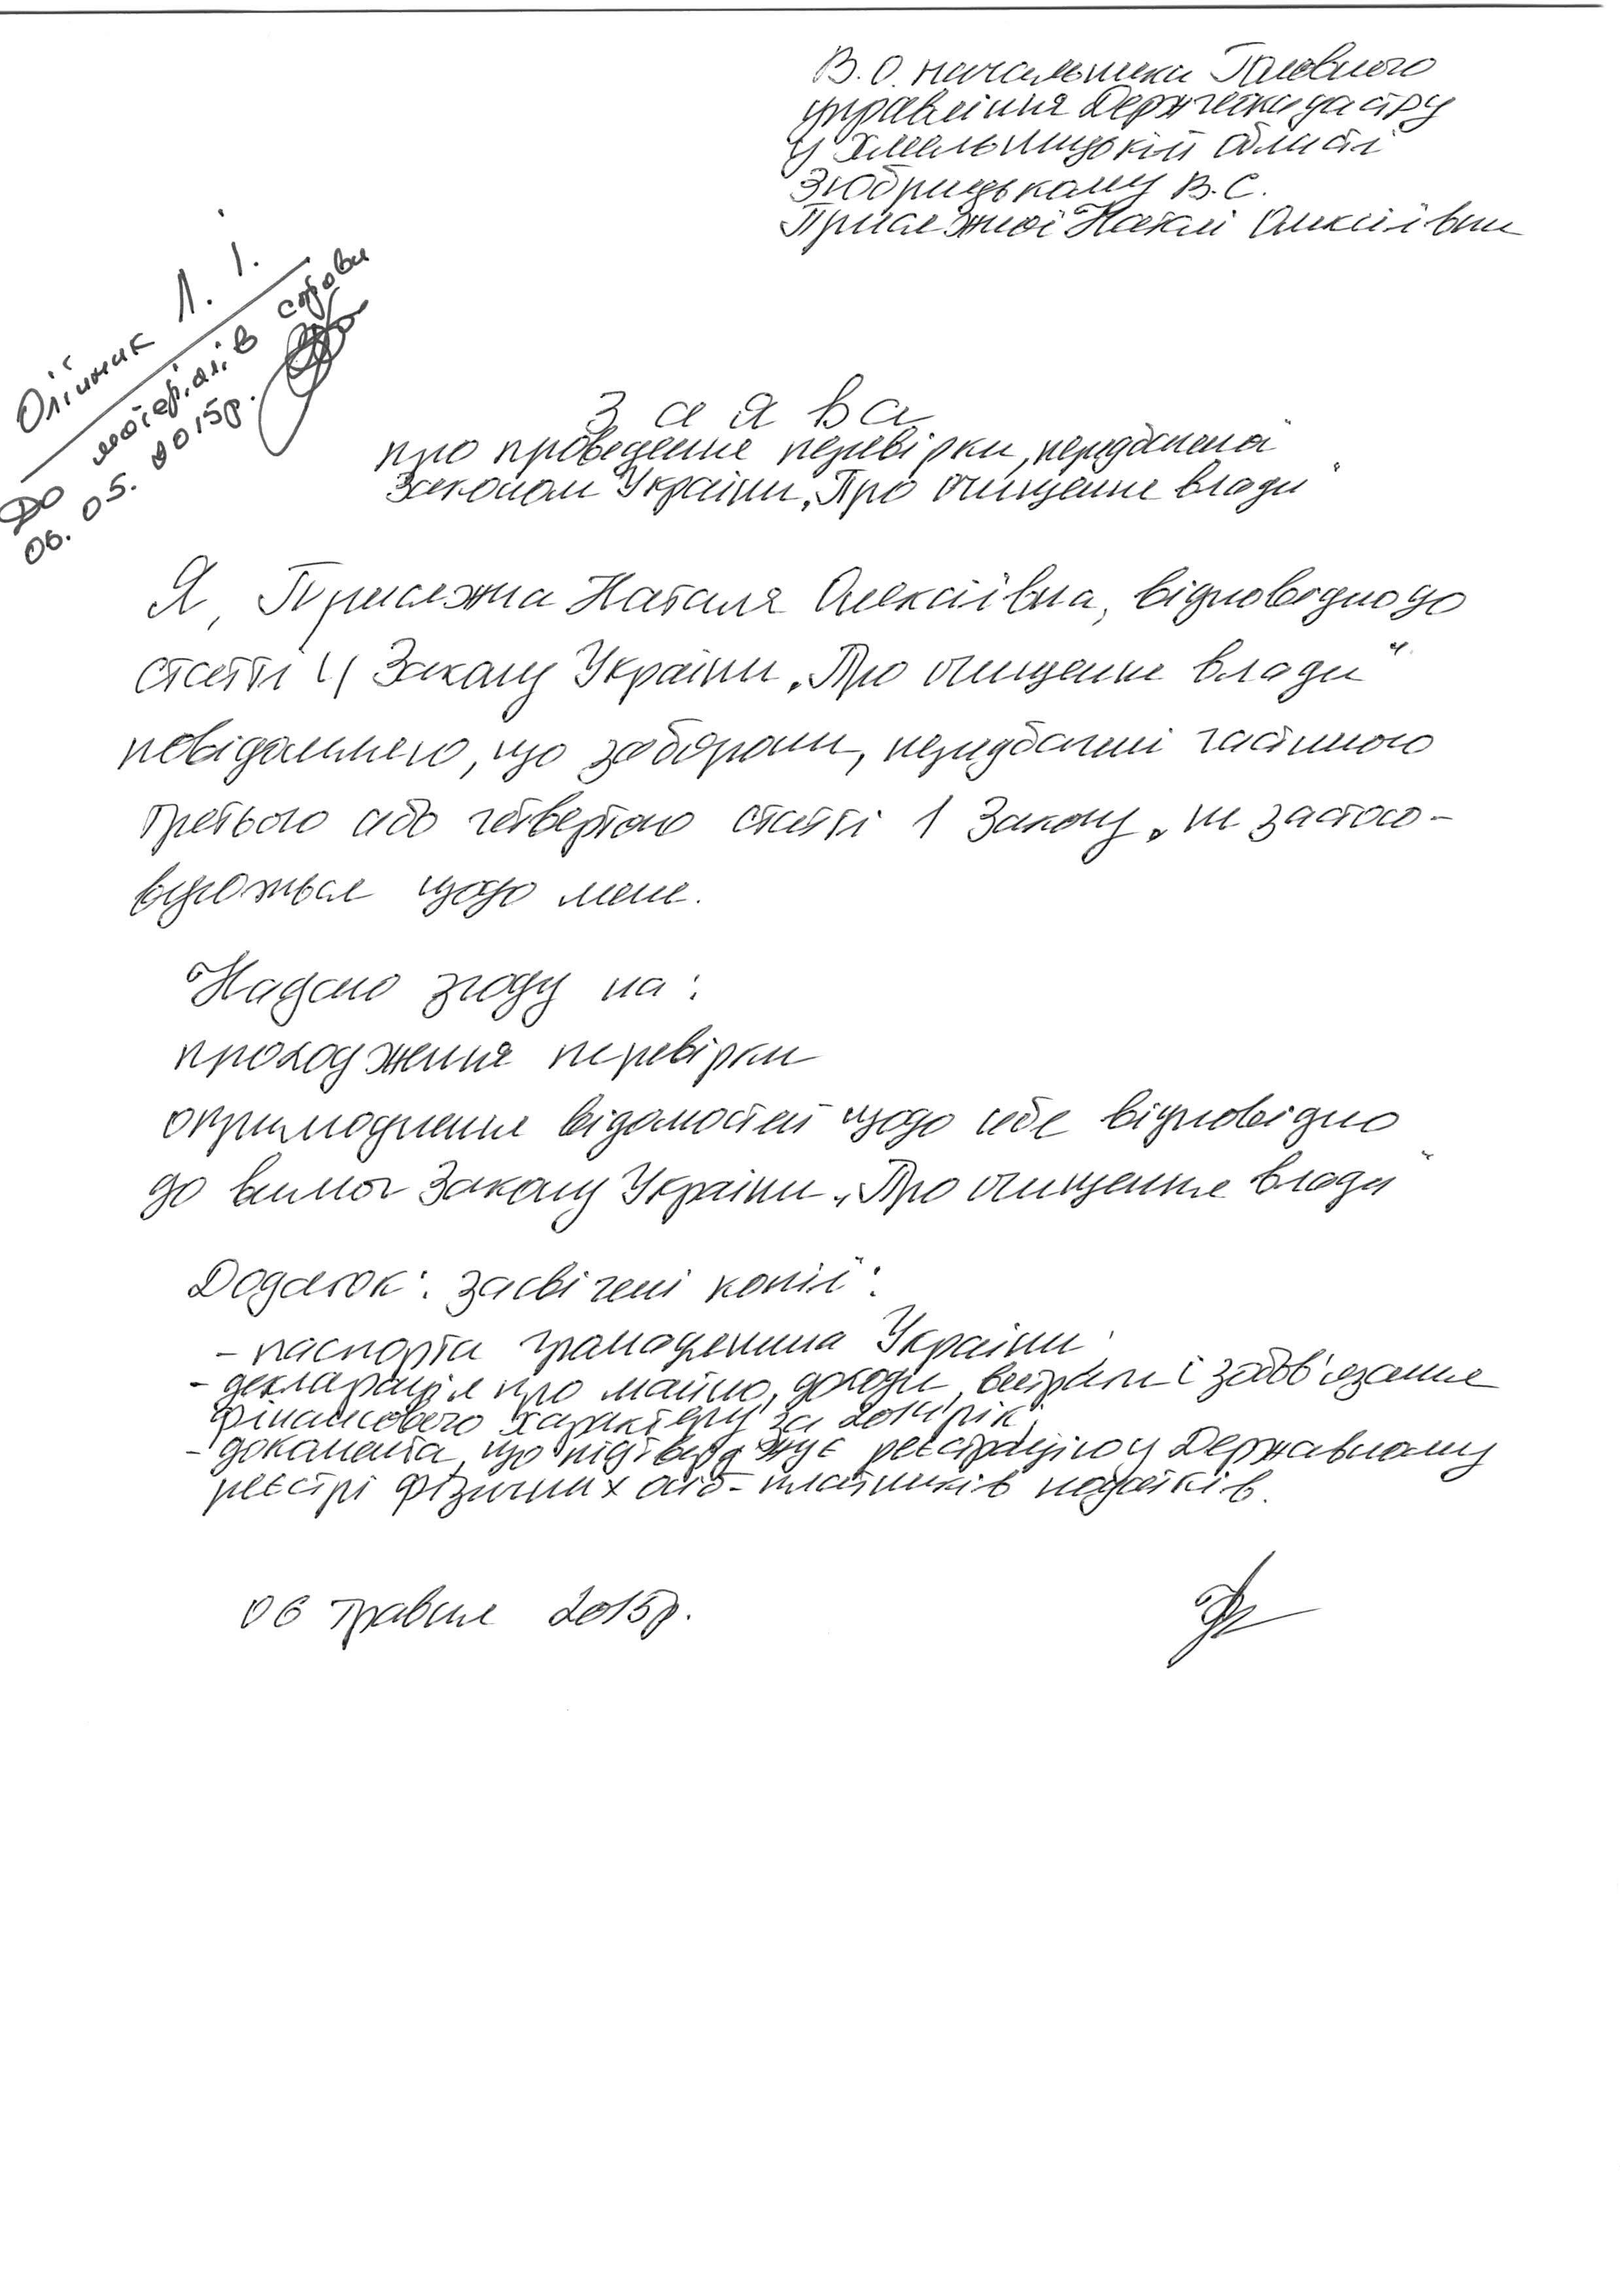 В.О. начальника Головного
управління Держгеокадастру
у Хмельницькій області
Зюбрицькому В.С.
Присяжної Наталі Олексіївни
Олійник Л. І.
До матеріалів справи
06. 05. 2015р.
Заява
про проведення перевірки, передбаченої
Законом України „Про очищення влади"
Я, Присяжна Наталя Олексіївна, відповідно до
статті 4 Закону України „Про очищення влади"
повідомляю, що заборони, передбачені частиною
третьою або четвертою статті 1 Закону, не застосо-
вуються щодо мене.
Надаю згоду на:
проходження перевірки
оприлюднення відомостей щодо себе відповідно
до вимог Закону України „Про очищення влади"
Додаток: засвічені копії:
- паспорта громадянина України
- декларація про майно, доходи, витрати і зобов'язання
фінансового характеру за 2014 рік,
- документа, що підтверджує реєстрацію у Державному
реєстрі фізичних осіб-платників податків.
06 травня 2015р.